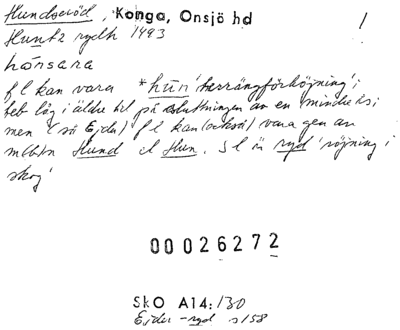 Hundseröd, Konga, Onsjö hd /
Huntz rydh 1493
hónsara
fl kan vara *hūn 'terrängförhöjning';
beb låg i äldre tid på sluttningen av en mindre ås;
men (så Ejder) fl kan (också) vara gen av
m(b)n Hund el Hun. sl är ryd 'röjning i
skog'
00026272
SkO A14:130
Ejder -ryd s 158